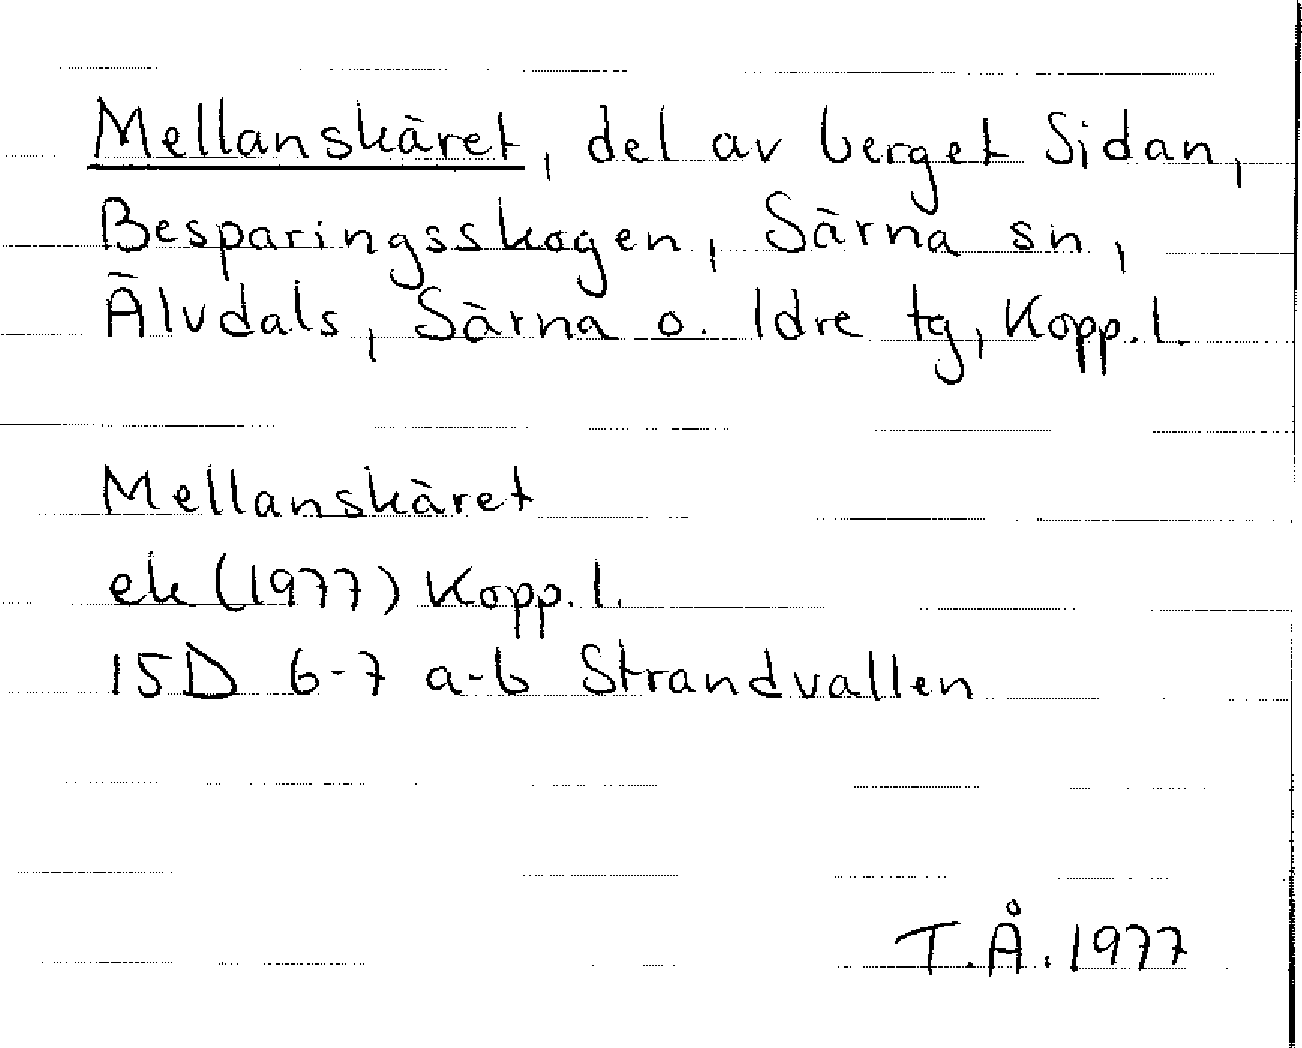 Mellanskäret, del av berget Sidan,
Besparingsskogen, Särna sn,
Älvdals, Särna o. Idre tg, Kopp. l.
Mellanskäret
ek (1977) Kopp. l.
15D 6-7 a-b Strandvallen
T.Å. 1977